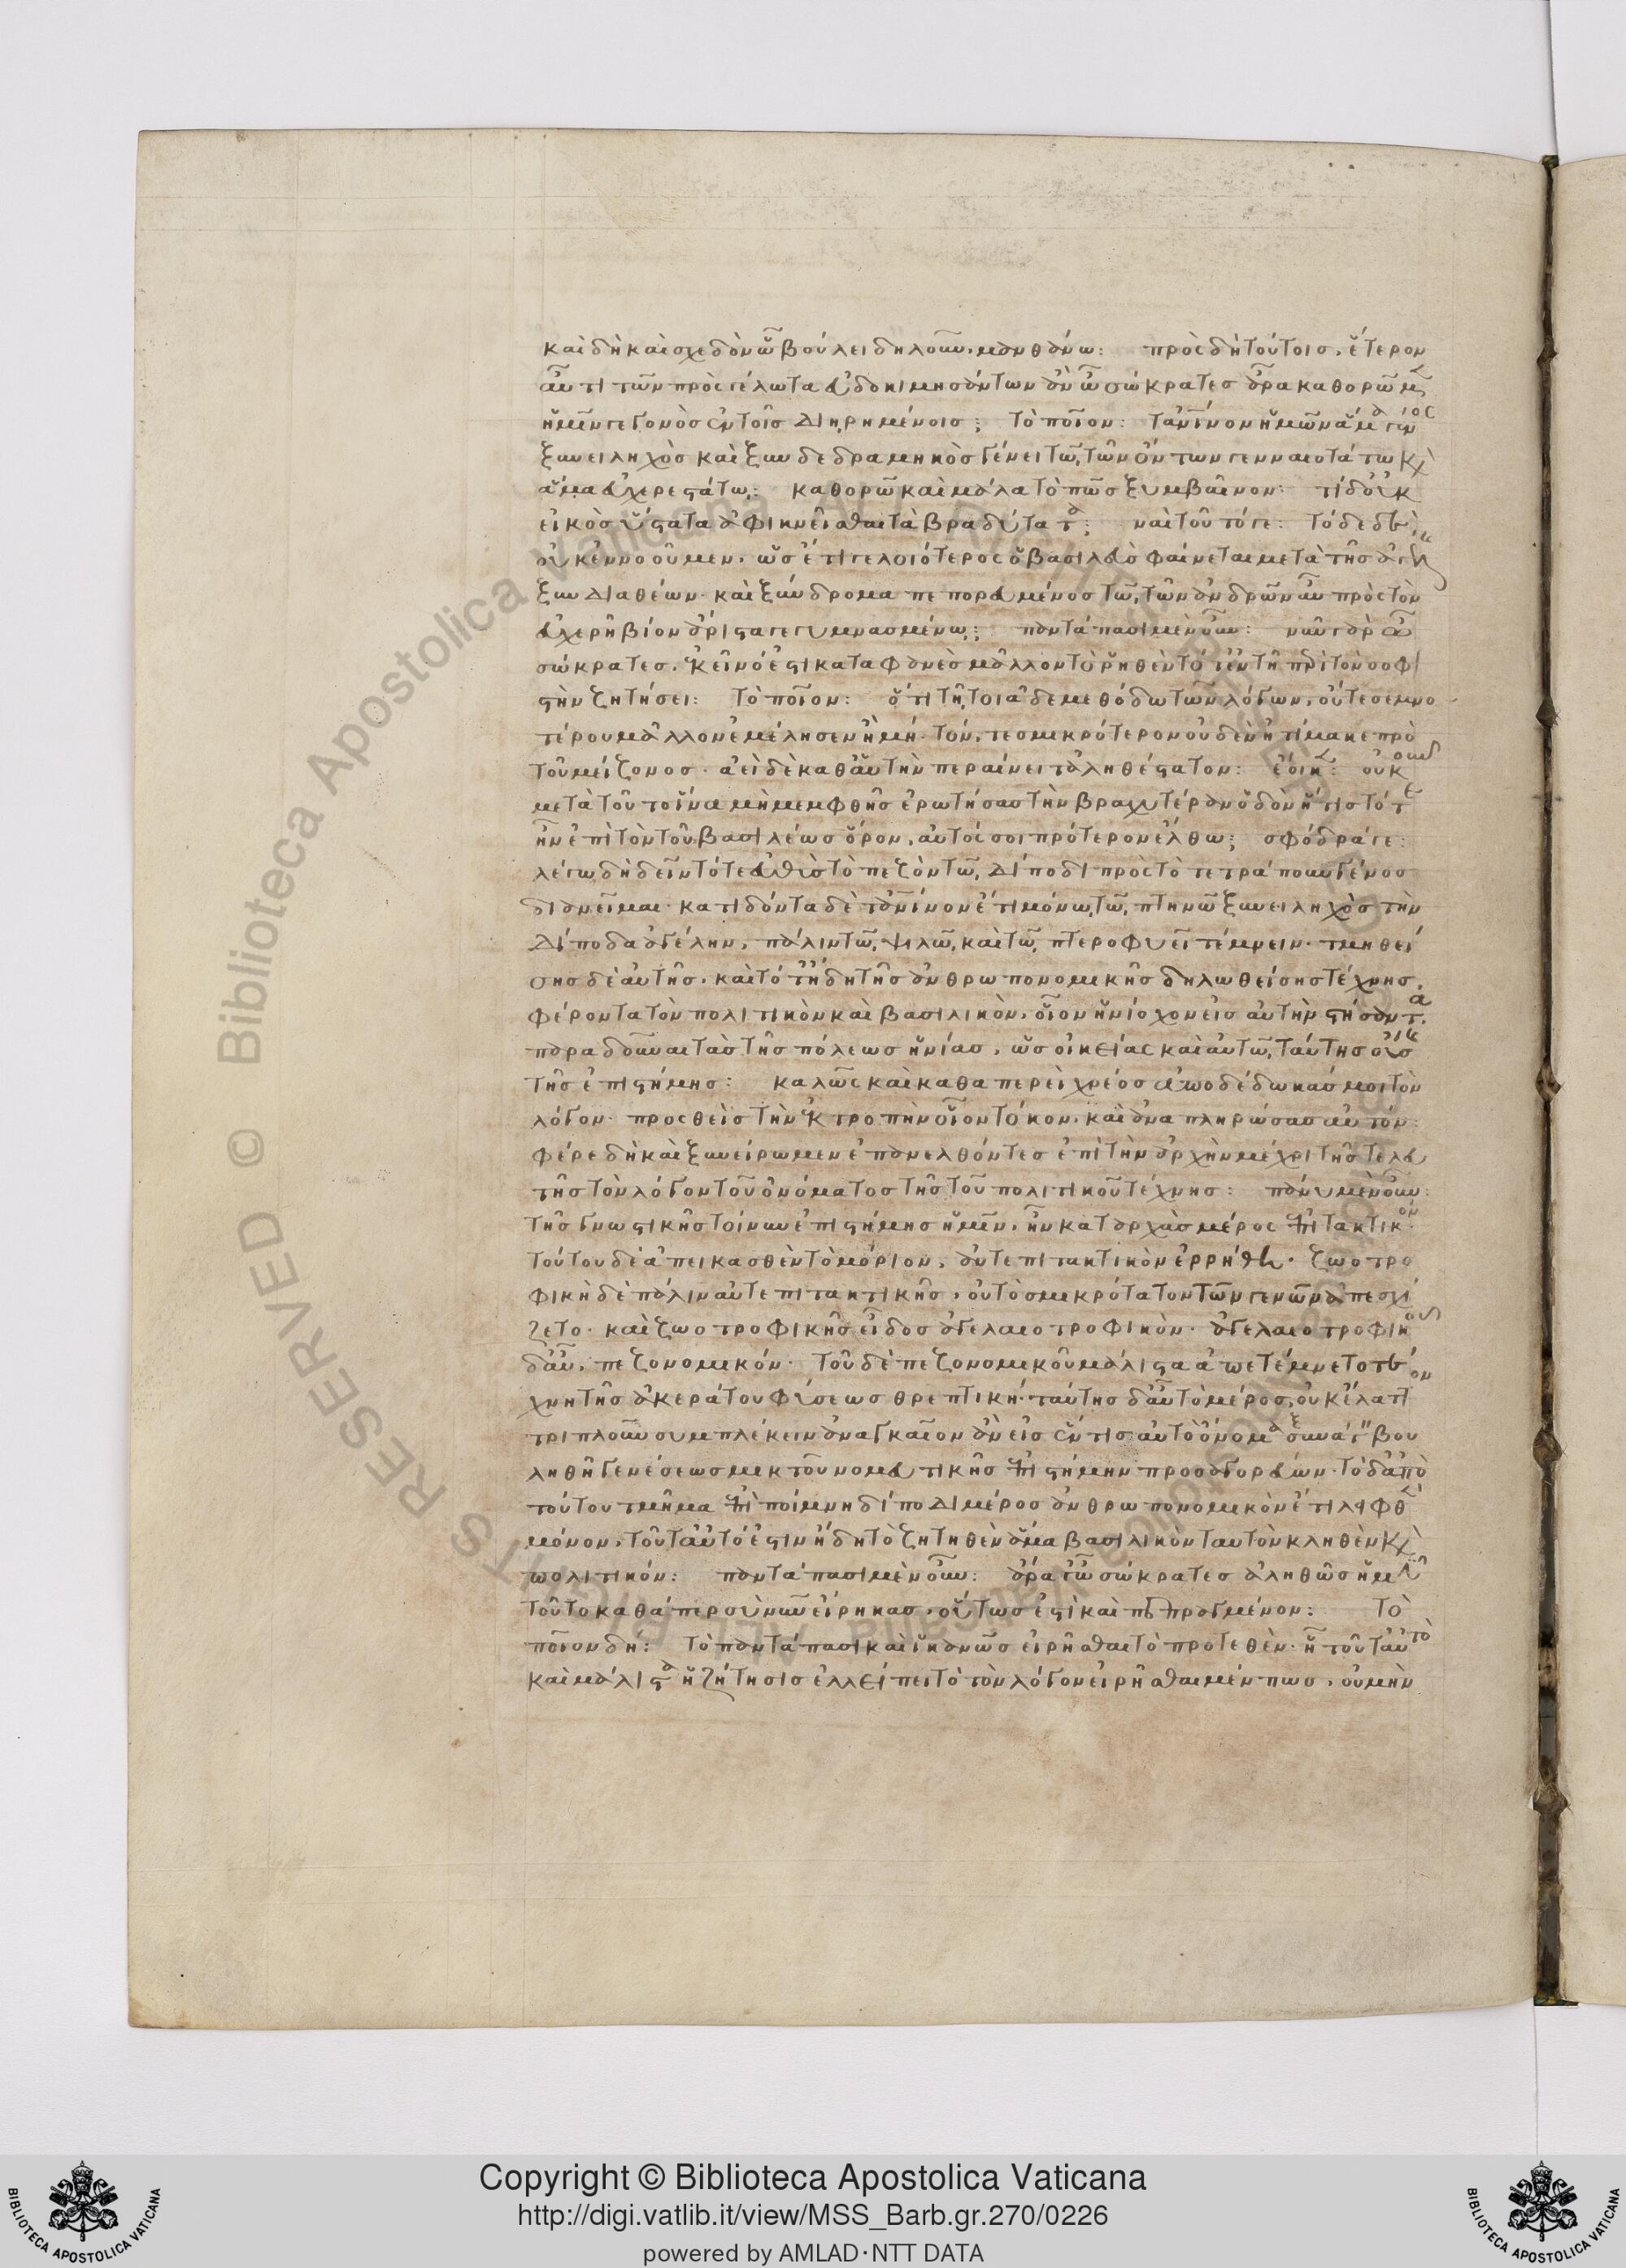 καὶ δὴ καὶ σχεδὸν ὧ βούλει δηλοῦν, μανθάνω: πρὸς δὴ τούτοις, ἕτερον
αὖ τι τῶν πρὸς γέλωτα εὐδοκιμησάντων ἂν ὦ σώκρατες ἆρα καθορῶμεν
ἡμῖν γεγονὸς ἐν τοῖς διῃρημένοις; τὸ ποῖον: τἀνθρώπινον ἡμῶν ἅμα γένος
ξυνειληχὸς καὶ ξυνδεδραμηκὸς γένει τῶ, τῶν ὄντων γενναιοτάτω καὶ
ἅμα εὐχερεστάτω: καθορῶ καὶ μάλα τὸ πῶς ξυμβαῖνον: τί δ' οὐκ
εἰκὸς ὕστατα ἀφικνεῖσθαι τὰ βραδύτατα; ναὶ τοῦτό γε: τόδε δὲ
οὐκ ἐννοοῦμεν, ὡς ἔτι γελοιότερος ὁ βασιλεὺς φαίνεται μετὰ τῆς ἀγέλης
ξυνδιαθέων· καὶ ξύνδρομα πεπορευμένος τῶ, τῶν ἀνδρῶν αὖ πρὸς τὸν
εὐχερῆ βίον ἄριστα γεγυμνασμένω; παντάπασι μὲν οὖν: νῦν γὰρ ὦ
σώκρατες, ἐκεῖνό ἐστι καταφανὲς μᾶλλον τὸ ῥηθὲν τότ' ἐν τῆ περὶ τὸν σοφι
στὴν ζητήσει: τὸ ποῖον: ὅτι τῆ τοιᾶδε μεθόδω τῶν λόγων, οὔτε σεμνο
τέρου μᾶλλον ἐμέλησεν ἢ μή· τόν, τε σμικρότερον οὐδὲν ἠτίμακε πρὸ
τοῦ μείζονος· ἀεὶ δὲ καθ' αὑτὴν περαίνει τἀληθέστατον: ἔοικεν: οὐκοῦν
μετὰ τοῦτο ἵνα μὴ με μφθῆς ἐρωτήσας τὴν βραχυτέραν ὁδὸν ἥτις τότε
ἦν ἐπὶ τὸν τοῦ βασιλέως ὅρον, αὐτός σοι πρότερον ἔλθω; σφόδρά γε:
λέγω δὴ δεῖν τότε εὐθὺς τὸ πεζὸν τῶ, δίποδι πρὸς τὸ τετράπουν γένος
διανεῖμαι· κατιδόντα δὲ τἀνθρώπινον ἔτι μόνω, τῶ, πτηνῶ ξυνειληχὸς τὴν
δίποδα ἀγέλην, πάλιν τῶ, ψιλῶ, καὶ τῶ, πτεροφυεῖ τέμνειν· τμηθεί
σης δὲ αὐτῆς, καὶ τότ' ἤδη τῆς ἀνθρωπονομικῆς δηλωθείσης τέχνης,
φέροντα τὸν πολιτικὸν καὶ βασιλικὸν, οἷον ἡνίοχον εἰς αὐτὴν στήσαντα,
παραδοῦναι τὰς τῆς πόλεως ἡνίας, ὡς οἰκείας καὶ αὐτῶ, ταύτης οὔσης
τῆς ἐπιστήμης: καλῶς καὶ καθαπερεὶ χρέος ἀποδέδωκάς μοι τὸν
λόγον· προσθεὶς τὴν ἐκτροπὴν οἷον τόκον, καὶ ἀναπληρώσας αὐτόν:
φέρε δὴ καὶ ξυνείρωμεν ἐπανελθόντες ἐπὶ τὴν ἀρχὴν μέχρι τῆς τελευ
τῆς τὸν λόγον τοῦ ὀνόματος τῆς τοῦ πολιτικοῦ τέχνης: πάνυ μὲν οὖν:
τῆς γνωστικῆς τοίνυν ἐπιστήμης ἡμῖν, ἦν κατ' ἀρχὰς μέρος ἐπιτακτικόν·
τούτου δὲ ἀπεικασθὲν τὸ μόριον, αὐτεπιτακτικὸν ἐρρήθη· ζωοτρο
φικὴ δὲ πάλιν αὐτεπιτακτικῆς, οὐ τὸ σμικρότατον τῶν γενῶν ἀπεσχί
ζετο· καὶ ζωοτροφικῆς εἶδος ἀγελαιοτροφικὸν· ἀγελαιοτροφικοῦ
δ' αὖ, πεζονομικόν· τοῦ δὲ πεζονομικοῦ μάλιστα ἀπετέμνετο τέ
χνη τῆς ἀκεράτου φύσεως θρεπτική· ταύτης δ' αὖ τὸ μέρος, οὐκ ἔλαττον
τριπλοῦν συμπλέκειν ἀναγκαῖον ἂν εἰς ἕν τις αὐτὸ ὄνομα ξυναγαγεῖν βου
ληθῆ γενέσεως μίκτου νομευτικῆς ἐπιστήμην προσαγορεύων· τὸ δ' ἀπὸ
τούτου τμῆμα ἐπὶ ποίμνη δίποδι μέρος ἀνθρωπονομικὸν ἔτι λειφθὲν
μόνον, τοῦτ' αὐτό ἐστιν ἤδη τὸ ζητηθὲν ἅμα βασιλικὸν ταυτὸν κληθὲν καὶ
πολιτικόν: παντάπασι μὲν οὖν: ἆρά γ' ὦ σώκρατες ἀληθῶς ἡμῖν
τοῦτο καθάπερ σὺ νῦν εἴρηκας, οὕτως ἐστὶ καὶ πεπραγμένον: τὸ
ποῖον δή: τὸ παντάπασι καὶ ἱκανῶς εἰρῆσθαι τὸ προτεθέν· ἢ τοῦτ' αὐτὸ
καὶ μάλιστα ἡ ζήτησις ἐλλείπει τὸ τὸν λόγον εἰρῆσθαι μέν πως, οὐ μὴν
© Biblioteca Apostolica Vaticana
Copyright © Biblioteca Apostolica Vaticana
http://digi.vatlib.it/view/MSS_Barb.gr.270/0226
powered by AMLAD·NTT DATA
BIBLIOTECA APOSTOLICA VATICANA
BIBLIOTECA APOSTOLICA VATICANA